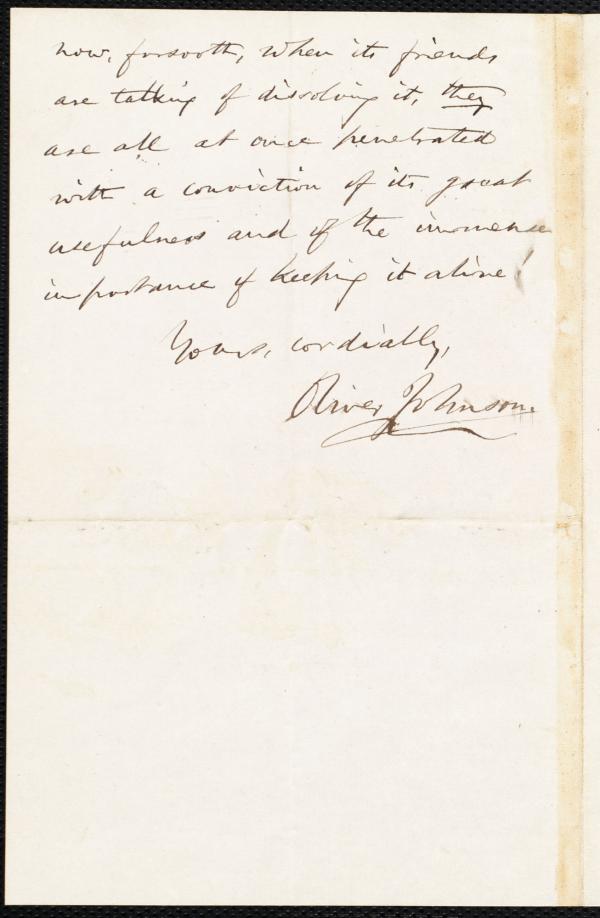 now, forsooth, when its friends
are talking of dissolving it, they
are all at once penetrated
with a conviction of its great
usefulness and of the immense
importance of keeping it alive!
Yours, cordially,
Oliver Johnson.